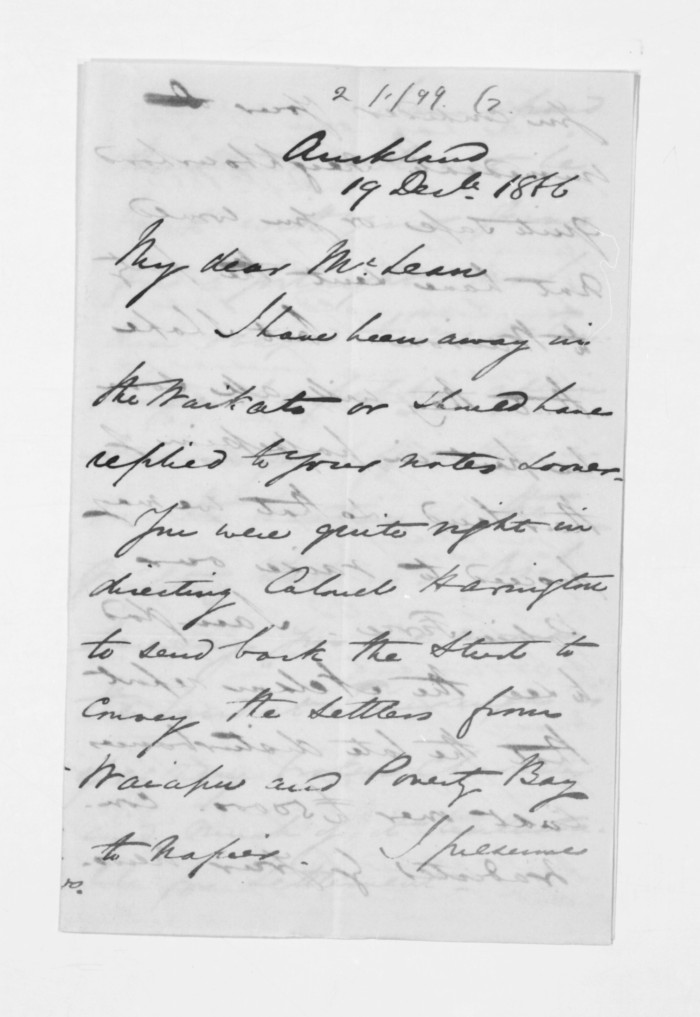 Auckland
19 Decbr 1866
My dear McLean
I have been away in
the Waikato or should have
replied to your notes sooner.
You were quite right in
directing Colonel Harington
to send back the Sturt to
convey the settlers from
Waiapu and Poverty Bay
to Napier. I presume